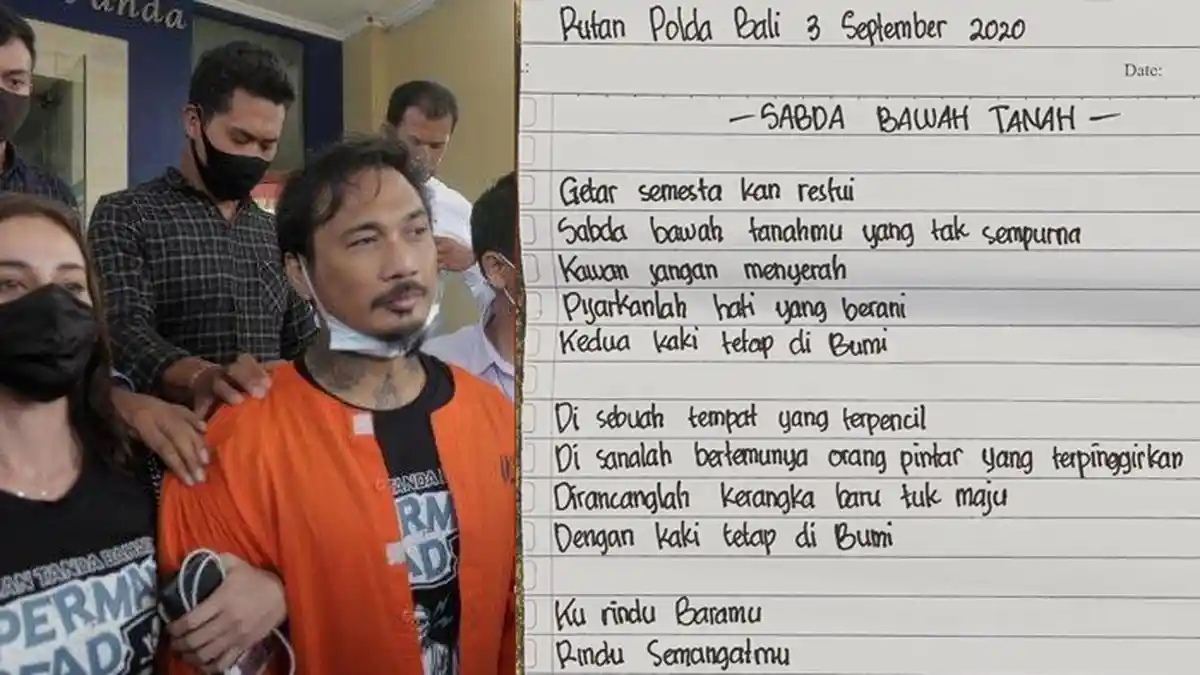 anda
TANDA
PERM
AD
AN TANDA BAHW
PERMA
EAD
Rutan Polda Bali 3 September 2020
Date:
— SABDA BAWAH TANAH —
Getar semesta kan restui
Sabda bawah tanahmu yang tak sempurna
Kawan jangan menyerah
Pijarkanlah hati yang berani
Kedua kaki tetap di Bumi
Di sebuah tempat yang terpencil
Di sanalah bertemunya orang pintar yang terpinggirkan
Dirancanglah kerangka baru tuk maju
Dengan kaki tetap di Bumi
Ku rindu Baramu
Rindu Semangatmu